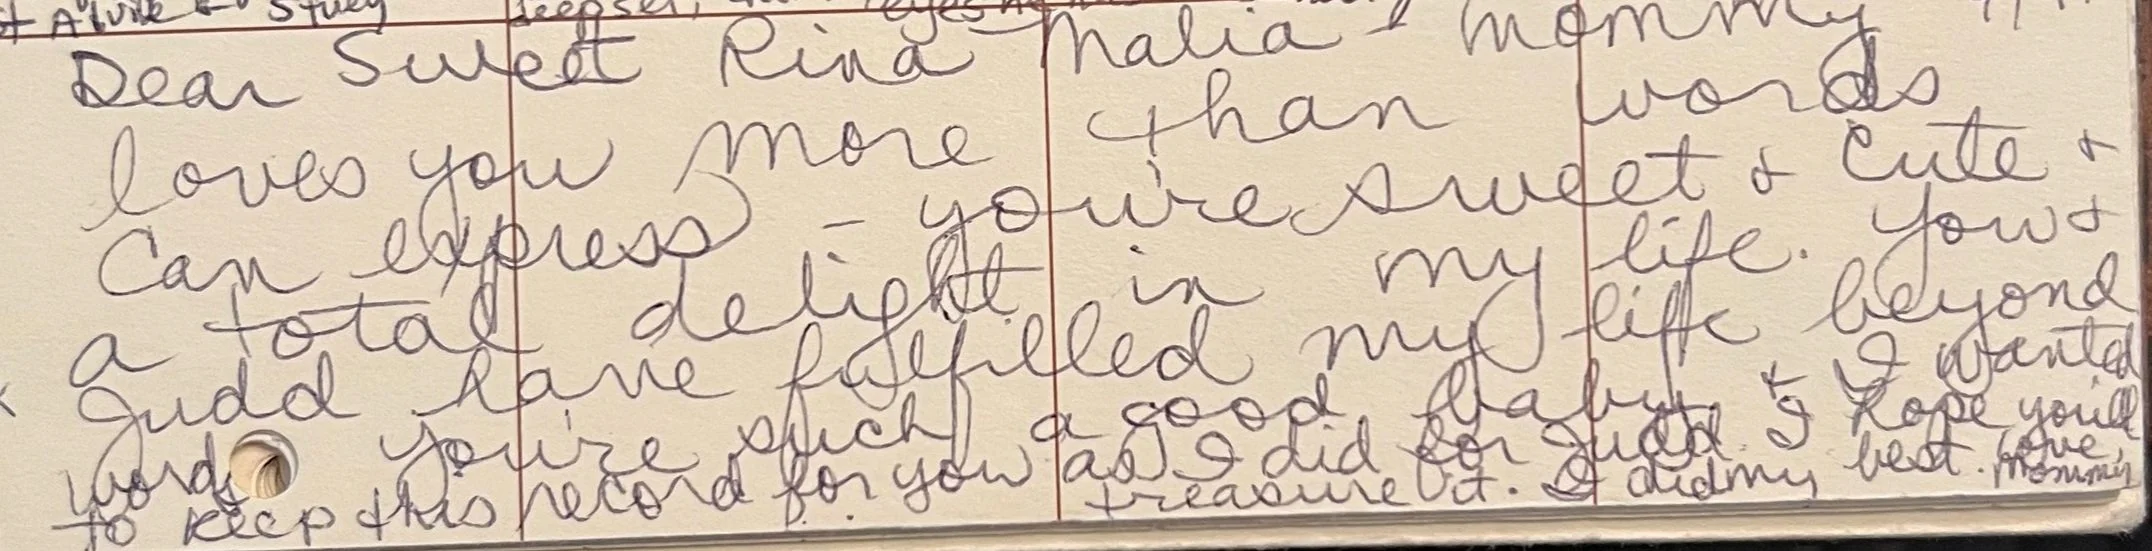 Study
Dear Sweet Rina Malia - Mommy
loves you more than words
can express - you're sweet & cute &
a total delight in my life. You &
Judd have fulfilled my life beyond
words you're such a good baby & I wanted
to keep this record for you as I did for Judd. I hope you'll
treasure it. I did my best. Love,
Mommy